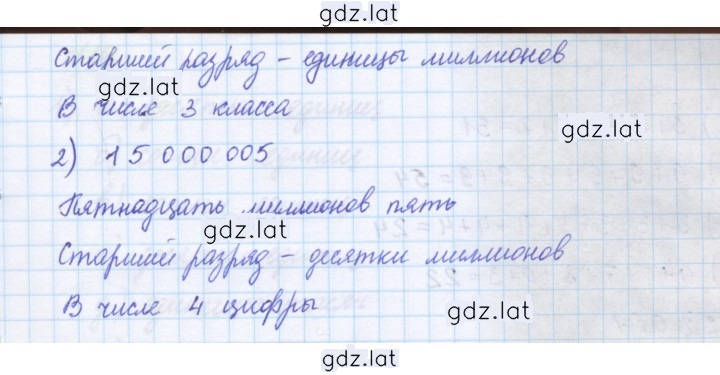 gdz.lat
Старший разряд – единицы миллионов
gdz.lat
В числе 3 класса
gdz.lat
2) 15 000 005
Пятнадцать миллионов пять
gdz.lat
Старший разряд – десятки миллионов
В числе 4 цифры
gdz.lat
gdz.lat